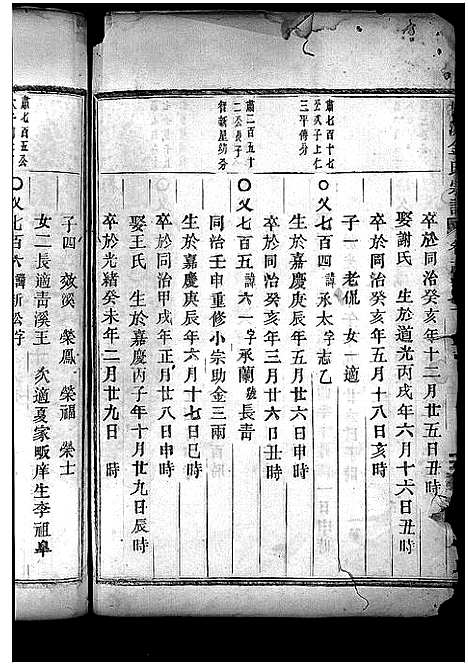 卒於同治癸亥年十二月廿五日丑時
娶謝氏 生於道光丙戌年六月十六日丑時
卒於同治癸亥年五月十八日亥時
子一 老侃 女一適
肅七百十七
公次子上仁
三平傳分
〇乂七百四 諱承太字志乙
生於嘉慶庚辰年五月廿六日申時
卒於同治癸亥年三月廿六日 時
肅二百五十
二公長子
智新星紡分
〇乂七百五 諱六一字承蘭號長青
同治壬申重修小宗助金三兩
生於嘉慶庚辰年六月十七日巳時
卒於同治甲戌年正月廿八日申時
娶王氏 生於嘉慶丙子年十月廿九日辰時
卒於光緒癸未年二月廿九日 時
子四 效溪 榮鳳 榮福 榮士
女二長適青溪王 次適夏家畈庠生李祖皐
肅七百五公
〇乂七百六 諱新公字